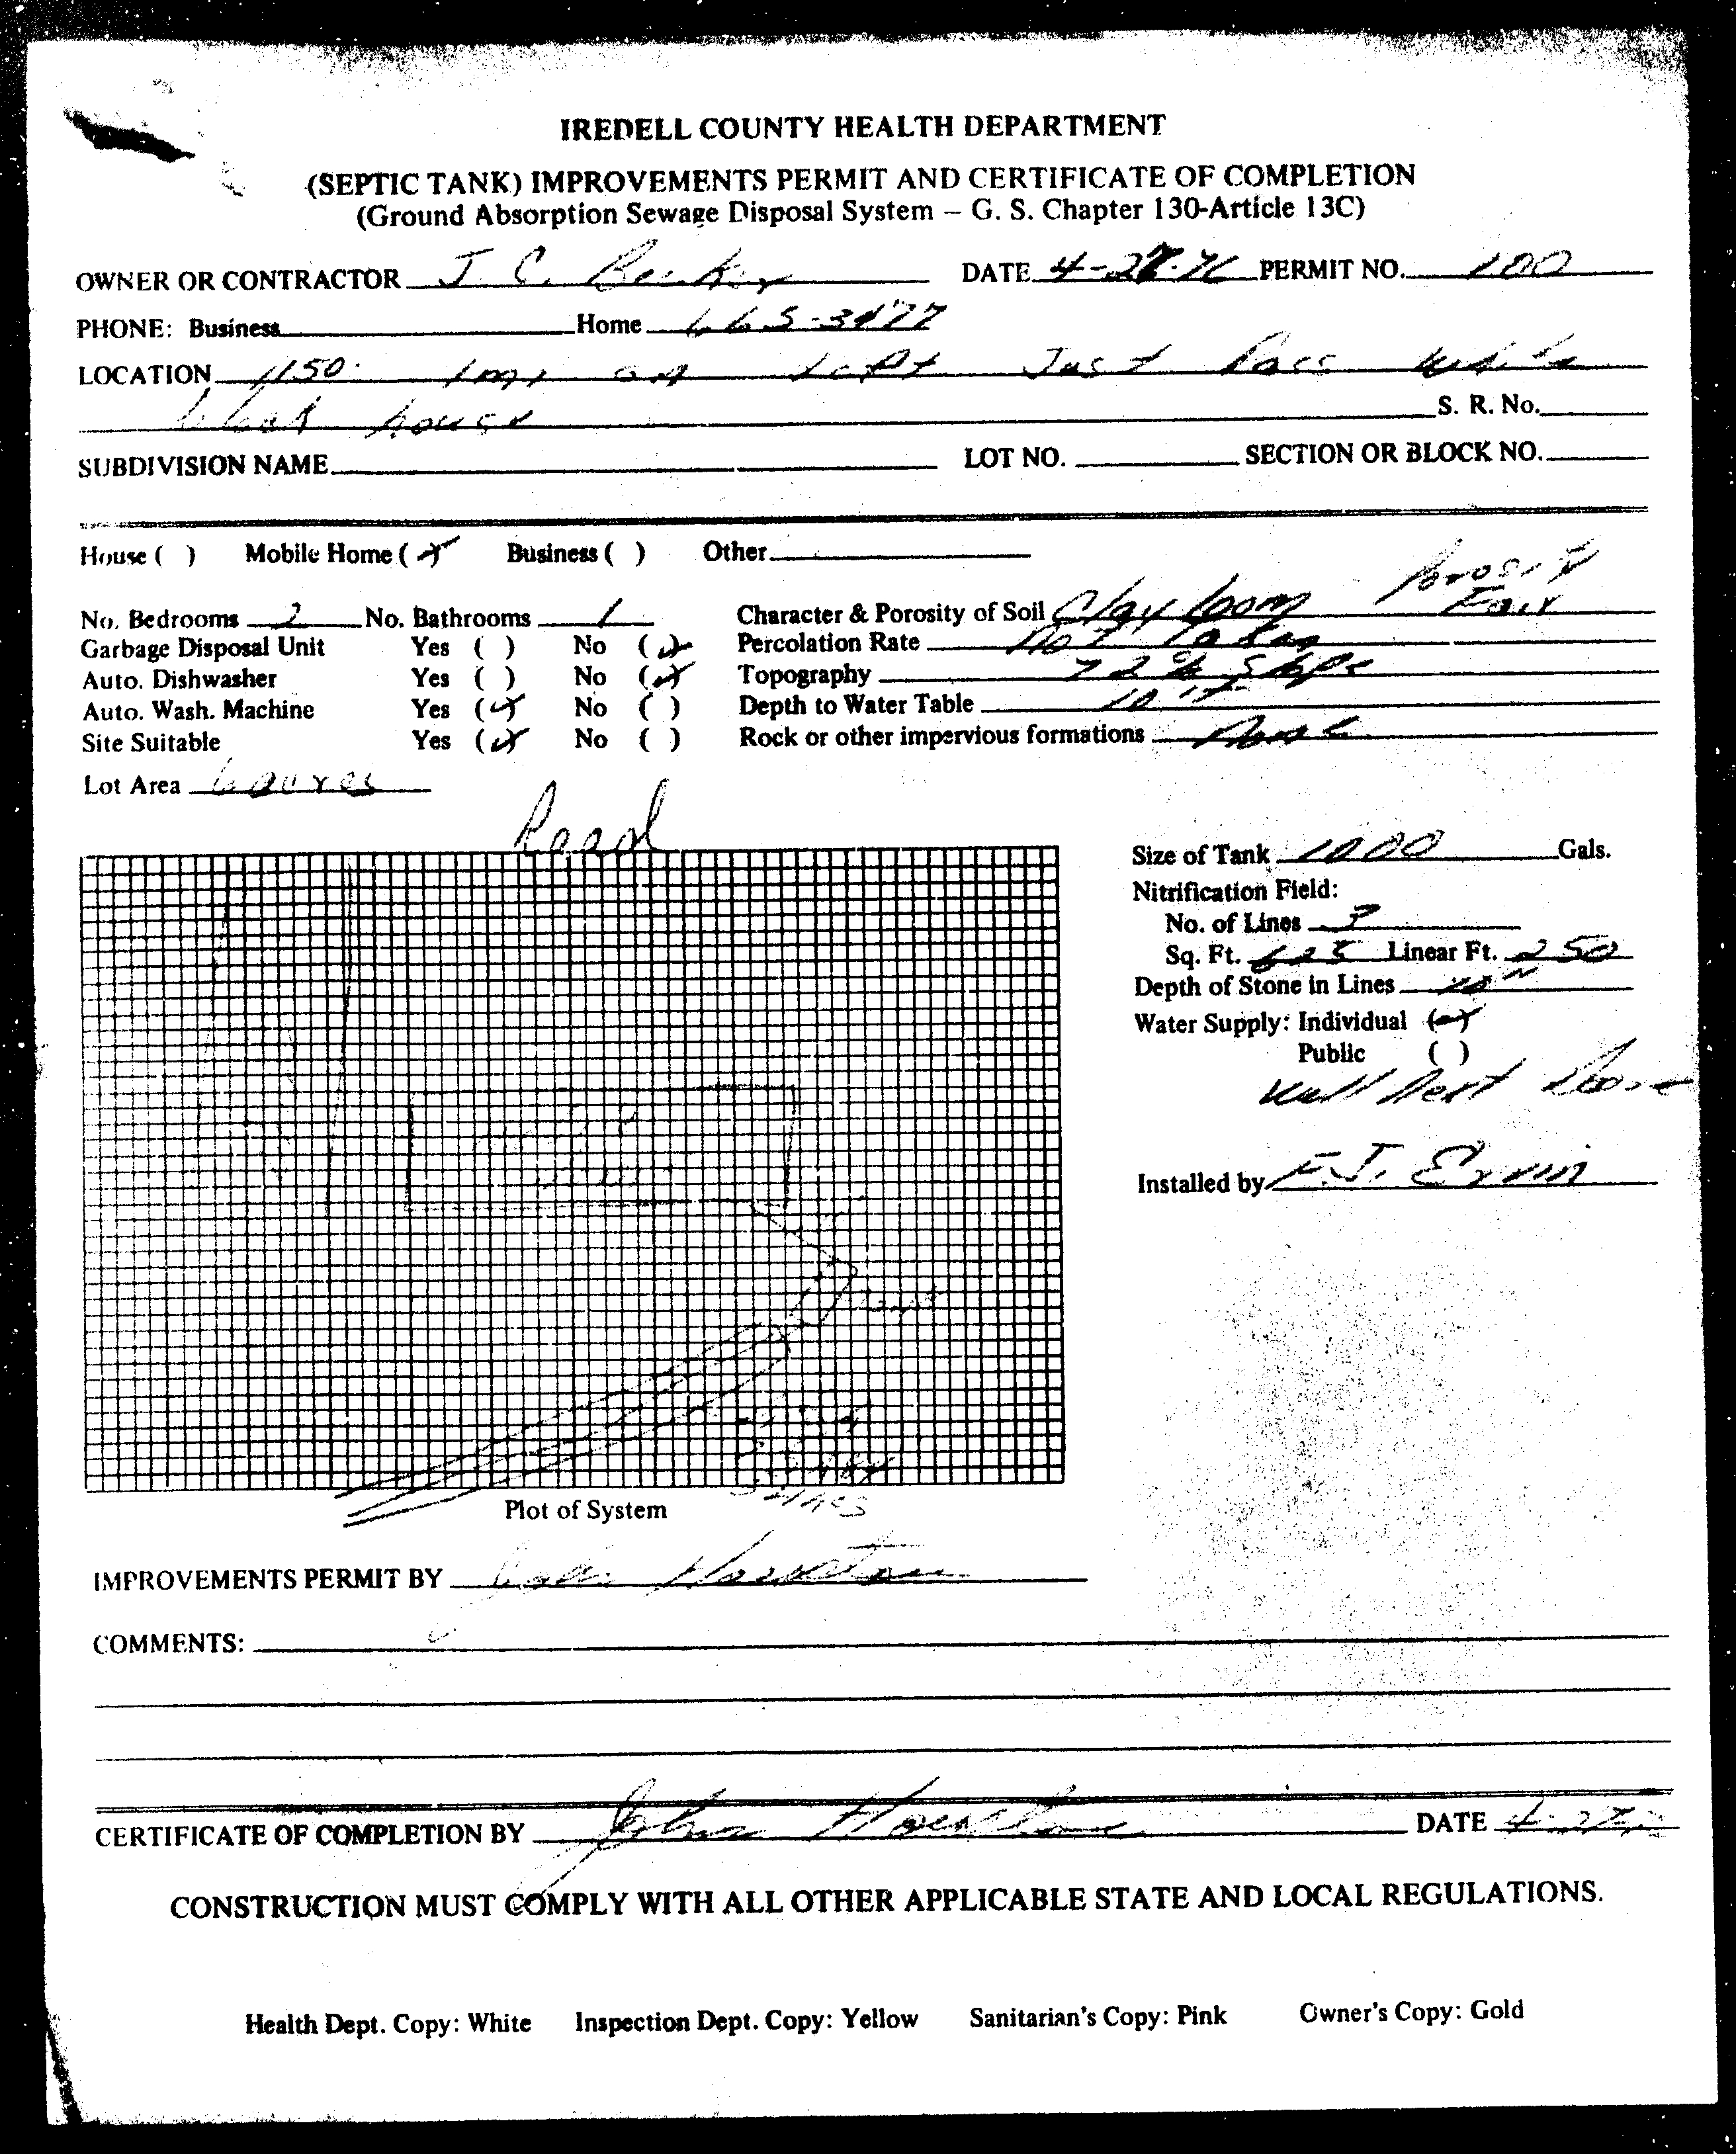 IREDELL COUNTY HEALTH DEPARTMENT
(SEPTIC TANK) IMPROVEMENTS PERMIT AND CERTIFICATE OF COMPLETION
(Ground Absorption Sewage Disposal System – G. S. Chapter 130-Article 13C)
OWNER OR CONTRACTOR J. C. DATE 4-27-76 PERMIT NO. 100
PHONE: Business Home 665-3477
LOCATION 1150. 1 mi on left Just Pass White
block house S. R. No.
SUBDIVISION NAME LOT NO. SECTION OR BLOCK NO.
House ( ) Mobile Home (x) Business ( ) Other
No. Bedrooms 2 No. Bathrooms 1 Character & Porosity of Soil Clay loom Porosity Fair
Garbage Disposal Unit Yes ( ) No (x) Percolation Rate Not Taken
Auto. Dishwasher Yes ( ) No (x) Topography 72% Slope
Auto. Wash. Machine Yes (x) No ( ) Depth to Water Table 10 ft
Site Suitable Yes (x) No ( ) Rock or other impervious formations None
Lot Area 6 acres
Road
Size of Tank 1000 Gals.
Nitrification Field:
No. of Lines 3
Sq. Ft. 625 Linear Ft. 250
Depth of Stone in Lines
Water Supply: Individual (x)
Public ( )
Well Next Door
Installed by F.J. Ervin
Plot of System
IMPROVEMENTS PERMIT BY
COMMENTS:
CERTIFICATE OF COMPLETION BY John DATE 4-27
CONSTRUCTION MUST COMPLY WITH ALL OTHER APPLICABLE STATE AND LOCAL REGULATIONS.
Health Dept. Copy: White Inspection Dept. Copy: Yellow Sanitarian's Copy: Pink Owner's Copy: Gold